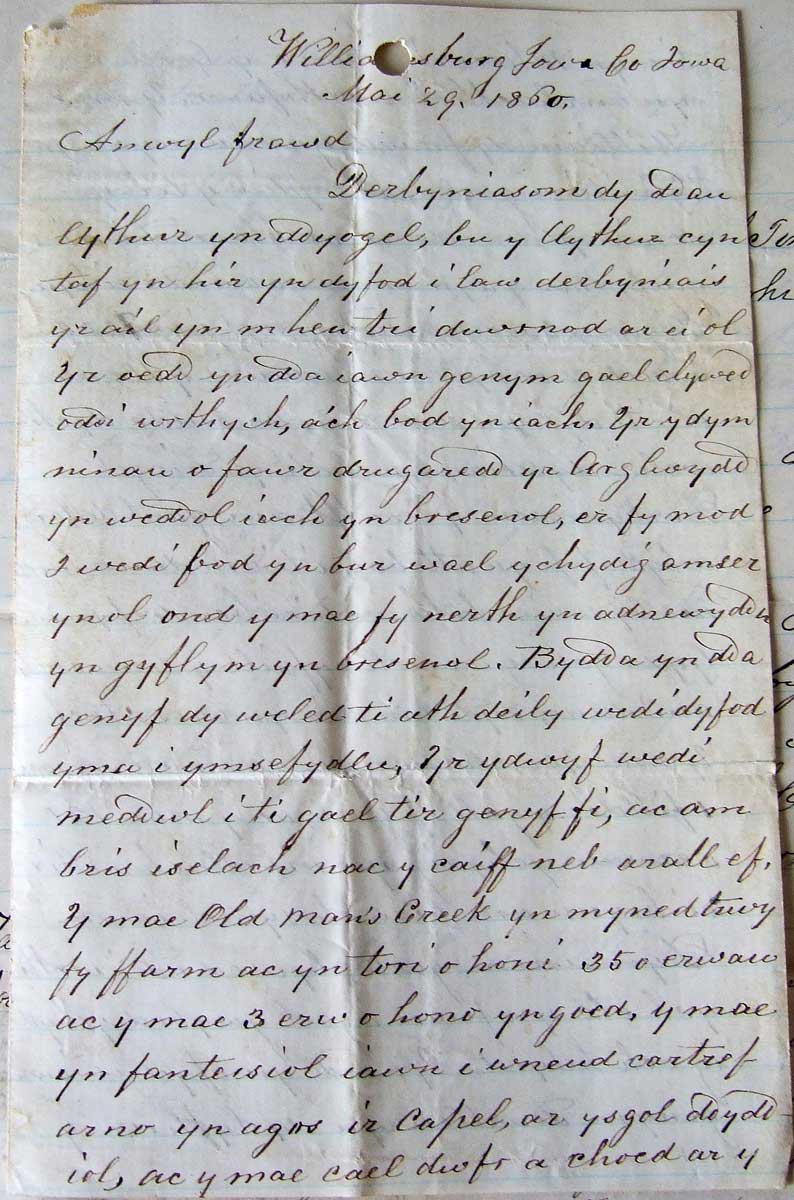 Williamsburg Iowa Co Iowa
Mai 29. 1860.
Anwyl frawd
Derbyniasom dy ddau
lythur yn ddyogel, bu y llythur cyn
taf yn hir yn dyfod i law derbyniais
yr ail yn mhen tri diwrnod ar ei ol
Yr oedd yn dda iawn genym gael clywed
oddi wrthych, a'ch bod yn iach. Yr ydym
ninau o fawr drugaredd yr Arglwydd
yn weddol iach yn bresenol, er fy mod
I wedi bod yn bur wael ychydig amser
yn ol ond y mae fy nerth yn adnewyddu
yn gyflym yn bresenol. Bydda yn dda
genyf dy weled ti ath deily wedi dyfod
yma i ymsefydlu, Yr ydwyf wedi
meddwl i ti gael tir genyf fi, ac am
bris iselach nac y caiff neb arall ef.
Y mae Old Man's Creek yn myned trwy
fy ffarm ac yn tori o honi 35 o erwau
ac y mae 3 erw o hono yn goed, y mae
yn fanteisiol iawn i wneud cartref
arno yn agos ir Capel, ar ysgol ddydd-
iol, ac y mae cael dwfr a choed ar y